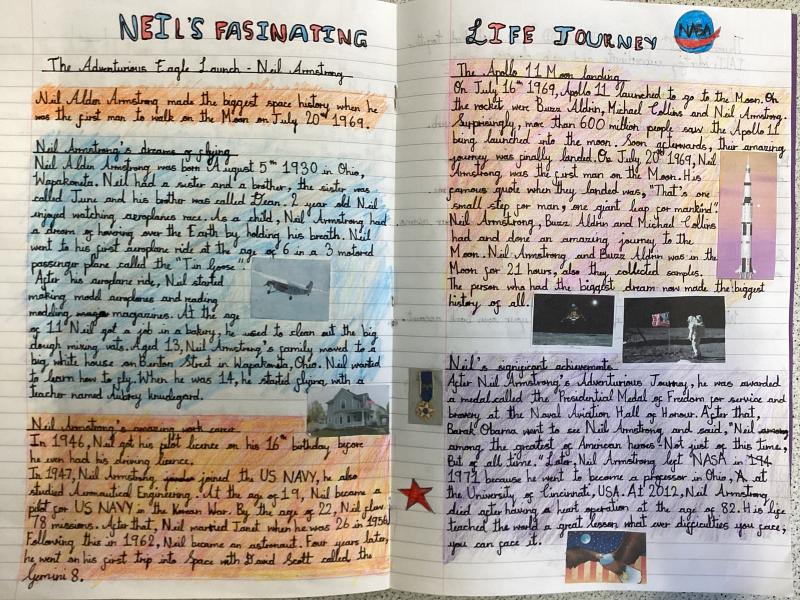 NEIL'S FASINATING
The Adventurious Eagle Launch - Neil Armstrong
Neil Alden Armstrong made the biggest space history when he
was the first man to walk on the Moon on July 20th 1969.
Neil Armstrong's dreams of flying
Neil Alden Armstrong was born August 5th 1930 in Ohio,
Wapakoneta. Neil had a sister and a brother, the sister was
called June and his brother was called Dean. 2 year old Neil
enjoyed watching aeroplanes race. As a child, Neil Armstrong had
a dream of hovering over the Earth by holding his breath. Neil
went to his first aeroplane ride at the age of 6 in a 3 motored
passenger plane called the "Tin Goose".
After his aeroplane ride, Neil started
making model aeroplanes and reading
modeling magazines. At the age
of 11 Neil got a job in a bakery, he used to clean out the big
dough mixing vats. Aged 13, Neil Armstrong's family moved to a
big white house on Benton Street in Wapakoneta, Ohio. Neil wanted
to learn how to fly. When he was 14, he started flying with a
teacher named Aubrey knudegard.
Neil Armstrong's amazing work career
In 1946, Neil got his pilot licence on his 16th birthday before
he even had his driving licence.
In 1947, Neil Armstrong joined the US NAVY, he also
studied Aernautical Engineering. At the age of 19, Neil became a
pilot for US NAVY in the Korean War. By the age of 22, Neil flew
78 missions. After that, Neil married Janet when he was 26 in 1956.
Following this in 1962, Neil became an astronaut. Four years later,
he went on his first trip into Space with David Scott called the
Gemini 8.
LIFE JOURNEY
NASA
The Apollo 11 Moon landing
On July 16th 1969, Apollo 11 launched to go to the Moon. On
the rocket were Buzz Aldrin, Michael Collins and Neil Armstrong.
Surprisingly, more than 600 million people saw the Apollo 11
being launched into the moon. Soon afterwards, their amazing
journey was finally landed. On July 20th 1969, Neil
Armstrong was the first man on the Moon. His
famous quote when they landed was, "That's one
small step for man, one giant leap for mankind".
Neil Armstrong, Buzz Aldrin and Michael Collins
had and done an amazing journey to the
Moon. Neil Armstrong and Buzz Aldrin was in the
Moon for 21 hours, also they collected samples.
The person who had the biggest dream now made the biggest
history of all.
Neil's significant achievements
After Neil Armstrong's Adventurious Journey, he was awarded
a medal called the Presidential Medal of Freedom for service and
bravery at the Naval Aviation Hall of Honour. After that,
Barak Obama went to see Neil Armstrong and said, "Neil
among the greatest of American heroes. Not just of this time,
But of all time." Later, Neil Armstrong left NASA in
1971 because he went to become a professor in Ohio, at
the University of Cincinnati, USA. At 2012, Neil Armstrong
died after having a heart operation at the age of 82. His life
teached the world a great lesson what ever difficulties you face,
you can face it.